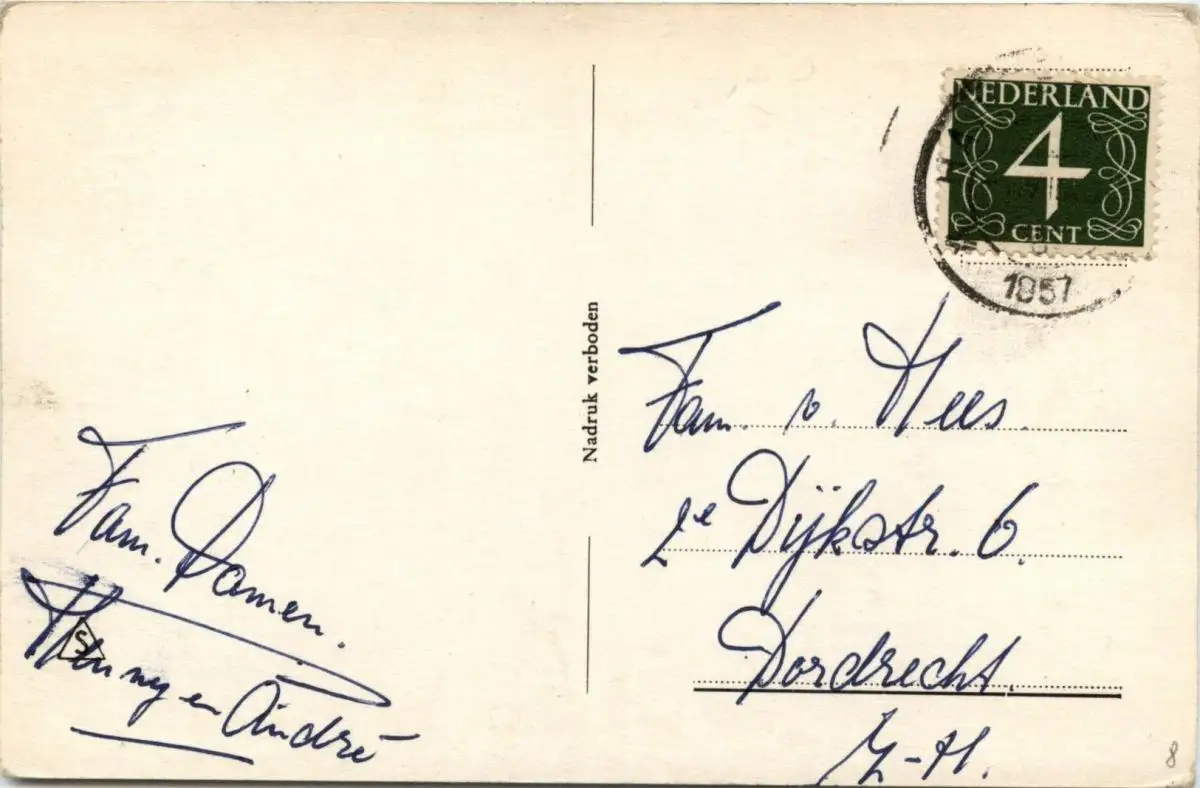 Fam. Damen.
Henny en André
Nadruk verboden
NEDERLAND
4
CENT
1957
Fam. v. Hees
2e Dijkstr. 6.
Dordrecht.
Z-H.
S
8